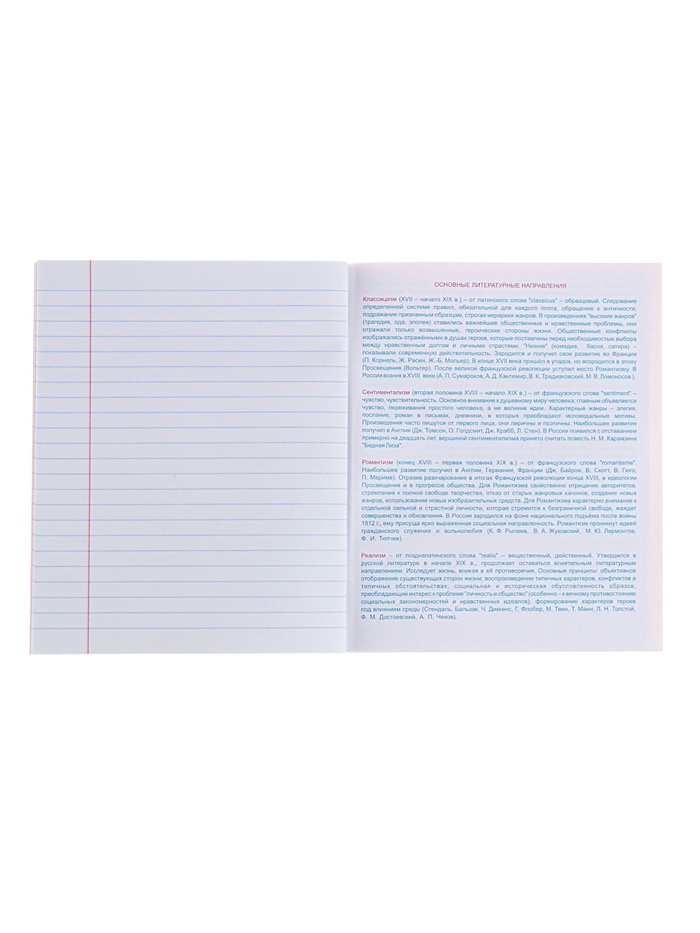 ОСНОВНЫЕ ЛИТЕРАТУРНЫЕ НАПРАВЛЕНИЯ
Классицизм (XVII – начало XIX в.) – от латинского слова "classicus" – образцовый. Следование
определенной системе правил, обязательной для каждого поэта, обращение к античности,
подражание признанным образцам, строгая иерархия жанров. В произведениях "высоких жанров"
(трагедия, ода, эпопея) ставились важнейшие общественные и нравственные проблемы, они
отражали только возвышенные, героические стороны жизни. Общественные конфликты
изображались отражёнными в душах героев, которые поставлены перед необходимостью выбора
между нравственным долгом и личными страстями. "Низкие" (комедия, басня, сатира) –
показывали современную действительность. Зародился и получил свое развитие во Франции
(П. Корнель, Ж. Расин, Ж.-Б. Мольер). В конце XVII века пришёл в упадок, но возродился в эпоху
Просвещения (Вольтер). После великой французской революции уступил место Романтизму. В
России возник в XVIII веке (А. П. Сумароков, А. Д. Кантемир, В. К. Тредиаковский, М. В. Ломоносов.).
Сентиментализм (вторая половина XVIII – начало XIX в.) – от французского слова "sentiment" –
чувство, чувствительность. Основное внимание к душевному миру человека; главным объявляется
чувство, переживания простого человека, а не великие идеи. Характерные жанры – элегия,
послание, роман в письмах, дневники, в которых преобладают исповедальные мотивы.
Произведения часто пишутся от первого лица, они лиричны и поэтичны. Наибольшее развитие
получил в Англии (Дж. Томсон, О. Голдсмит, Дж. Крабб, Л. Стен). В России появился с отставанием
примерно на двадцать лет, вершиной сентиментализма принято считать повесть Н. М. Карамзина
"Бедная Лиза".
Романтизм (конец XVIII – первая половина XIX в.) – от французского слова "romantisme".
Наибольшее развитие получил в Англии, Германии, Франции (Дж. Байрон, В. Скотт, В. Гюго,
П. Мериме). Отразив разочарование в итогах Французской революции конца XVIII, в идеологии
Просвещения и в прогрессе общества. Для Романтизма свойственно отрицание авторитетов,
стремление к полной свободе творчества, отказ от старых жанровых канонов, создание новых
жанров, использование новых изобразительных средств. Для Романтизма характерно внимание к
отдельной сильной и страстной личности, которая стремится к безграничной свободе, жаждет
совершенства и обновления. В России зародился на фоне национального подъёма после войны
1812 г., ему присуща ярко выраженная социальная направленность. Романтизм проникнут идеей
гражданского служения и вольнолюбия (К. Ф. Рылеев, В. А. Жуковский, М. Ю. Лермонтов,
Ф. И. Тютчев).
Реализм – от позднелатинского слова "realis" – вещественный, действенный. Утвердился в
русской литературе в начале XIX в., продолжает оставаться влиятельным литературным
направлением. Исследует жизнь, вникая в её противоречия. Основные принципы: объективное
отображение существующих сторон жизни; воспроизведение типичных характеров, конфликтов в
типичных обстоятельствах; социальная и историческая обусловленность образов;
преобладающий интерес к проблеме "личность и общество" (особенно – к вечному противостоянию
социальных закономерностей и нравственных идеалов); формирование характеров героев
под влиянием среды (Стендаль, Бальзак, Ч. Диккенс, Г. Флобер, М. Твен, Т. Манн, Л. Н. Толстой,
Ф. М. Достоевский, А. П. Чехов).